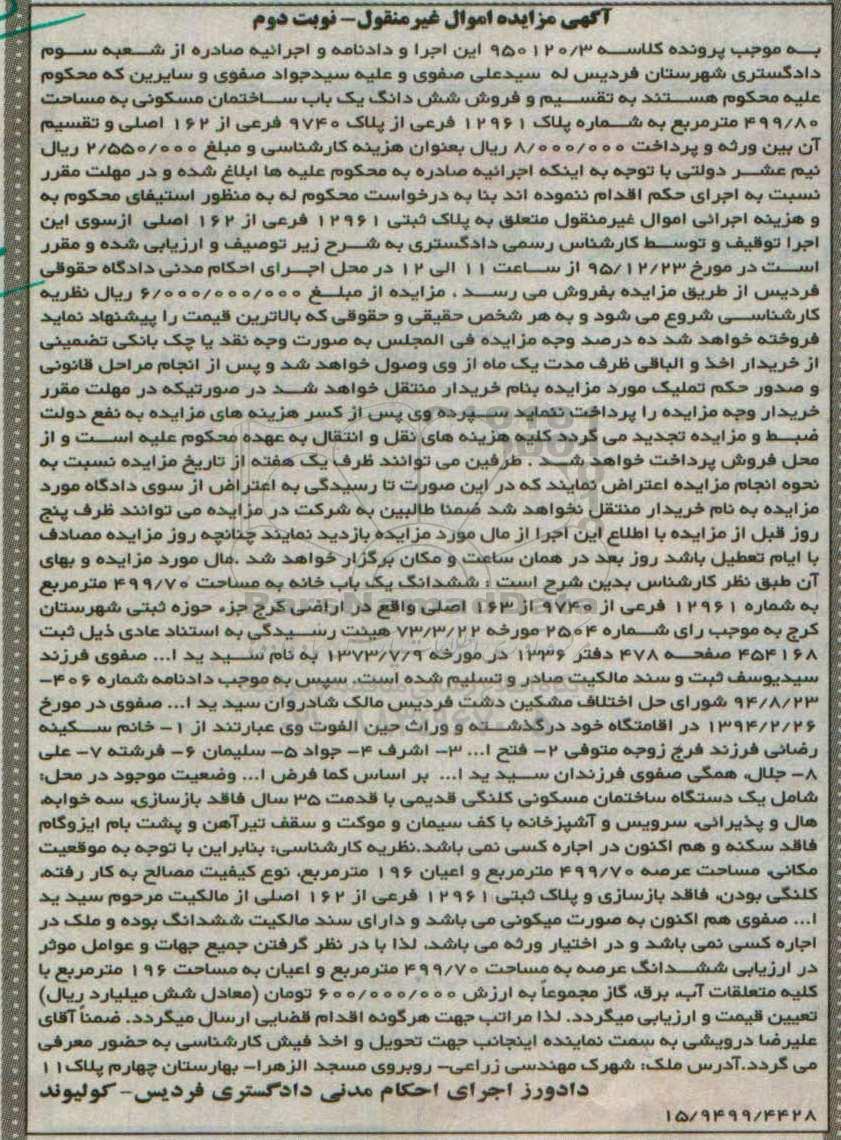 آگهی مزایده اموال غیرمنقول- نوبت دوم
به موجب پرونده کلاسه ۹۵۰۱۲۰/۳ این اجرا و دادنامه و اجرائیه صادره از شعبه سوم
دادگستری شهرستان فردیس له سیدعلی صفوی و علیه سیدجواد صفوی و سایرین که محکوم
علیه محکوم هستند به تقسیم و فروش شش دانگ یک باب ساختمان مسکونی به مساحت
۴۹۹/۸۰ مترمربع به شماره پلاک ۱۲۹۶۱ فرعی از پلاک ۹۷۴۰ فرعی از ۱۶۲ اصلی و تقسیم
آن بین ورثه و پرداخت ۸/۰۰۰/۰۰۰ ریال بعنوان هزینه کارشناسی و مبلغ ۲/۵۵۰/۰۰۰ ریال
نیم عشر دولتی با توجه به اینکه اجرائیه صادره به محکوم علیه ها ابلاغ شده و در مهلت مقرر
نسبت به اجرای حکم اقدام ننموده اند بنا به درخواست محکوم له به منظور استیفای محکوم به
و هزینه اجرائی اموال غیرمنقول متعلق به پلاک ثبتی ۱۲۹۶۱ فرعی از ۱۶۲ اصلی ازسوی این
اجرا توقیف و توسط کارشناس رسمی دادگستری به شرح زیر توصیف و ارزیابی شده و مقرر
است در مورخ ۹۵/۱۲/۲۳ از ساعت ۱۱ الی ۱۲ در محل اجرای احکام مدنی دادگاه حقوقی
فردیس از طریق مزایده بفروش می رسد . مزایده از مبلغ ۶/۰۰۰/۰۰۰/۰۰۰ ریال نظریه
کارشناسی شروع می شود و به هر شخص حقیقی و حقوقی که بالاترین قیمت را پیشنهاد نماید
فروخته خواهد شد ده درصد وجه مزایده فی المجلس به صورت وجه نقد یا چک بانکی تضمینی
از خریدار اخذ و الباقی ظرف مدت یک ماه از وی وصول خواهد شد و پس از انجام مراحل قانونی
و صدور حکم تملیک مورد مزایده بنام خریدار منتقل خواهد شد در صورتیکه در مهلت مقرر
خریدار وجه مزایده را پرداخت ننماید سپرده وی پس از کسر هزینه های مزایده به نفع دولت
ضبط و مزایده تجدید می گردد کلیه هزینه های نقل و انتقال به عهده محکوم علیه است و از
محل فروش پرداخت خواهد شد . طرفین می توانند ظرف یک هفته از تاریخ مزایده نسبت به
نحوه انجام مزایده اعتراض نمایند که در این صورت تا رسیدگی به اعتراض از سوی دادگاه مورد
مزایده به نام خریدار منتقل نخواهد شد ضمنا طالبین به شرکت در مزایده می توانند ظرف پنج
روز قبل از مزایده با اطلاع این اجرا از مال مورد مزایده بازدید نمایند چنانچه روز مزایده مصادف
با ایام تعطیل باشد روز بعد در همان ساعت و مکان برگزار خواهد شد .مال مورد مزایده و بهای
آن طبق نظر کارشناس بدین شرح است : ششدانگ یک باب خانه به مساحت ۴۹۹/۷۰ مترمربع
به شماره ۱۲۹۶۱ فرعی از ۹۷۴۰ از ۱۶۳ اصلی واقع در اراضی کرج جزء حوزه ثبتی شهرستان
کرج به موجب رای شماره ۲۵۰۴ مورخه ۷۳/۳/۲۲ هیئت رسیدگی به استناد عادی ذیل ثبت
۴۵۴۱۶۸ صفحه ۴۷۸ دفتر ۱۳۳۶ در مورخه ۱۳۷۳/۷/۹ به نام سید ید ا... صفوی فرزند
سیدیوسف ثبت و سند مالکیت صادر و تسلیم شده است. سپس به موجب دادنامه شماره ۴۰۶-
۹۴/۸/۲۳ شورای حل اختلاف مشکین دشت فردیس مالک شادروان سید ید ا... صفوی در مورخ
۱۳۹۴/۲/۲۶ در اقامتگاه خود درگذشته و وراث حین الفوت وی عبارتند از ۱- خانم سکینه
رضائی فرزند فرج زوجه متوفی ۲- فتح ا... ۳- اشرف ۴- جواد ۵- سلیمان ۶- فرشته ۷- علی
۸- جلال، همگی صفوی فرزندان سید ید ا... بر اساس کما فرض ا... وضعیت موجود در محل:
شامل یک دستگاه ساختمان مسکونی کلنگی قدیمی با قدمت ۳۵ سال فاقد بازسازی، سه خوابه،
هال و پذیرائی، سرویس و آشپزخانه با کف سیمان و موکت و سقف تیرآهن و پشت بام ایزوگام
فاقد سکنه و هم اکنون در اجاره کسی نمی باشد.نظریه کارشناسی: بنابراین با توجه به موقعیت
مکانی، مساحت عرصه ۴۹۹/۷۰ مترمربع و اعیان ۱۹۶ مترمربع، نوع کیفیت مصالح به کار رفته،
کلنگی بودن، فاقد بازسازی و پلاک ثبتی ۱۲۹۶۱ فرعی از ۱۶۲ اصلی از مالکیت مرحوم سید ید
ا... صفوی هم اکنون به صورت میکونی می باشد و دارای سند مالکیت ششدانگ بوده و ملک در
اجاره کسی نمی باشد و در اختیار ورثه می باشد، لذا با در نظر گرفتن جمیع جهات و عوامل موثر
در ارزیابی ششدانگ عرصه به مساحت ۴۹۹/۷۰ مترمربع و اعیان به مساحت ۱۹۶ مترمربع با
کلیه متعلقات آب، برق، گاز مجموعاً به ارزش ۶۰۰/۰۰۰/۰۰۰ تومان (معادل شش میلیارد ریال)
تعیین قیمت و ارزیابی میگردد. لذا مراتب جهت هرگونه اقدام قضایی ارسال میگردد. ضمناً آقای
علیرضا درویشی به سمت نماینده اینجانب جهت تحویل و اخذ فیش کارشناسی به حضور معرفی
می گردد.آدرس ملک: شهرک مهندسی زراعی- روبروی مسجد الزهرا- بهارستان چهارم پلاک۱۱
دادورز اجرای احکام مدنی دادگستری فردیس- کولیوند
۱۵/۹۴۹۹/۴۴۲۸